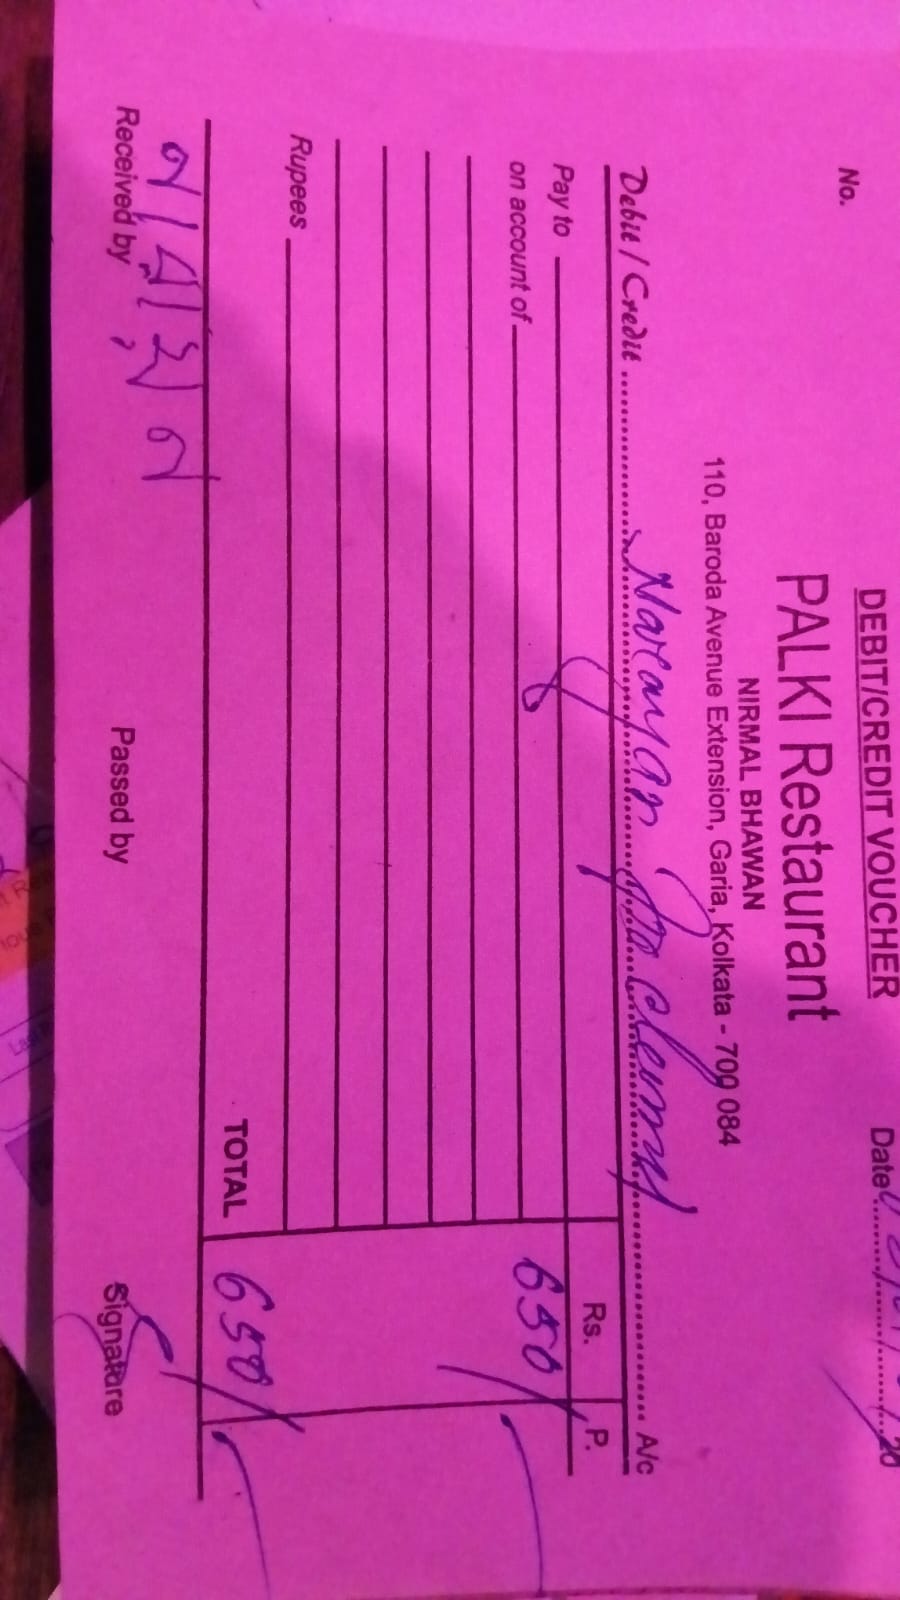 DEBIT/CREDIT VOUCHER
No.
PALKI Restaurant
Date
NIRMAL BHAWAN
110, Baroda Avenue Extension, Garia, Kolkata - 700 084
Debit / Credit Narayan A/c
Rs. P.
Pay to 650/-
on account of
Rupees
TOTAL 650/-
নারায়ন
Received by Passed by Signature